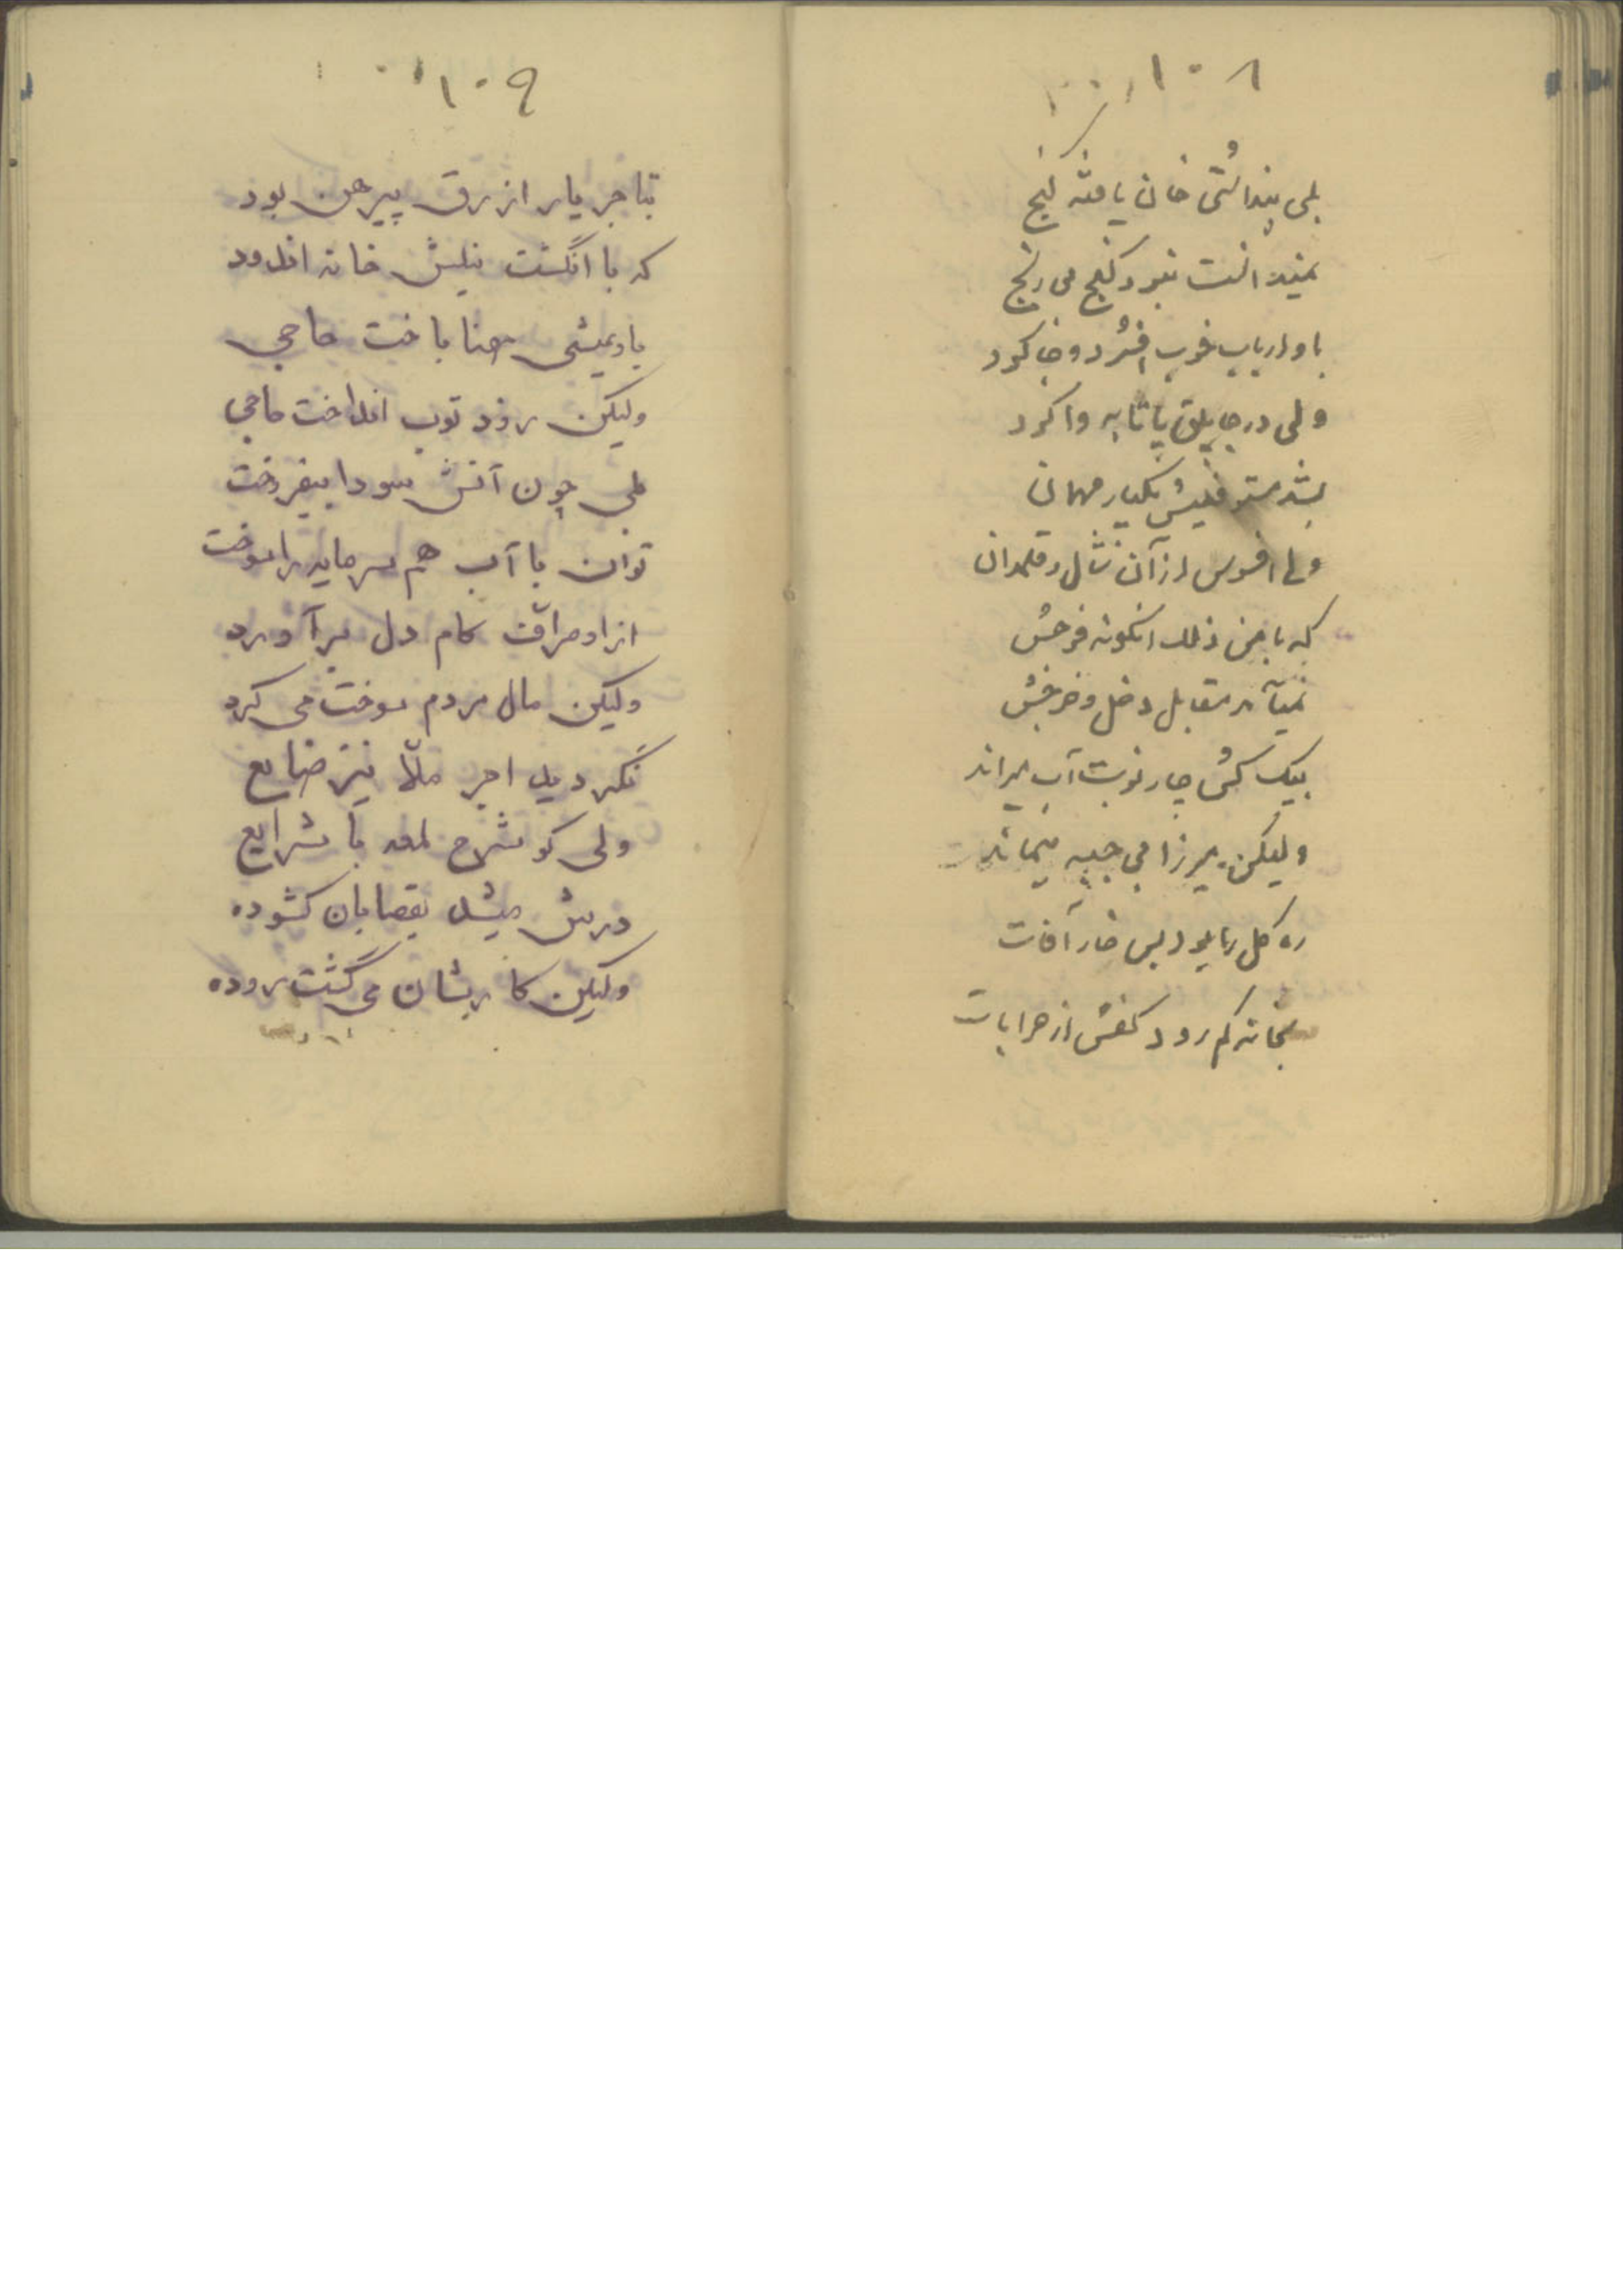 ۱۰۸
بلی پنداشتی خان یافته گنج
نمیدانست نبود گنج بی رنج
باو ارباب خوب افشرد و جا کرد
ولی در پاتابه وا کرد
بشد مستوفیش یکبار مهمان
ولی افسوس از آن شال و قلمدان
که با من ذلک اینگونه فرجش
نمیآمد مقابل دخل و خرجش
بیک کش چار نوبت آب میراند
ولیکن میرزا بی جبه میماند
ره گل را بود بس خار آفات
بخانه کم رود کفش از خرابات
۱۰۹
بتاجر یار ازرق پیرهن بود
که با انگشت نیلش خانه اندود
باو میشی حنا باخت حاجی
ولیکن زود توپ انداخت حاجی
بلی چون آتش سودا بیفروخت
توان با آب هم سرمایه را سوخت
از او صراف کام دل برآورد
ولیکن مال مردم سوخت می کرد
نگردید اجر ملّا نیز ضایع
ولی کو شرح لمعه با شرایع
درش میشد بقصابان گشوده
ولیکن کارشان می گشت روده